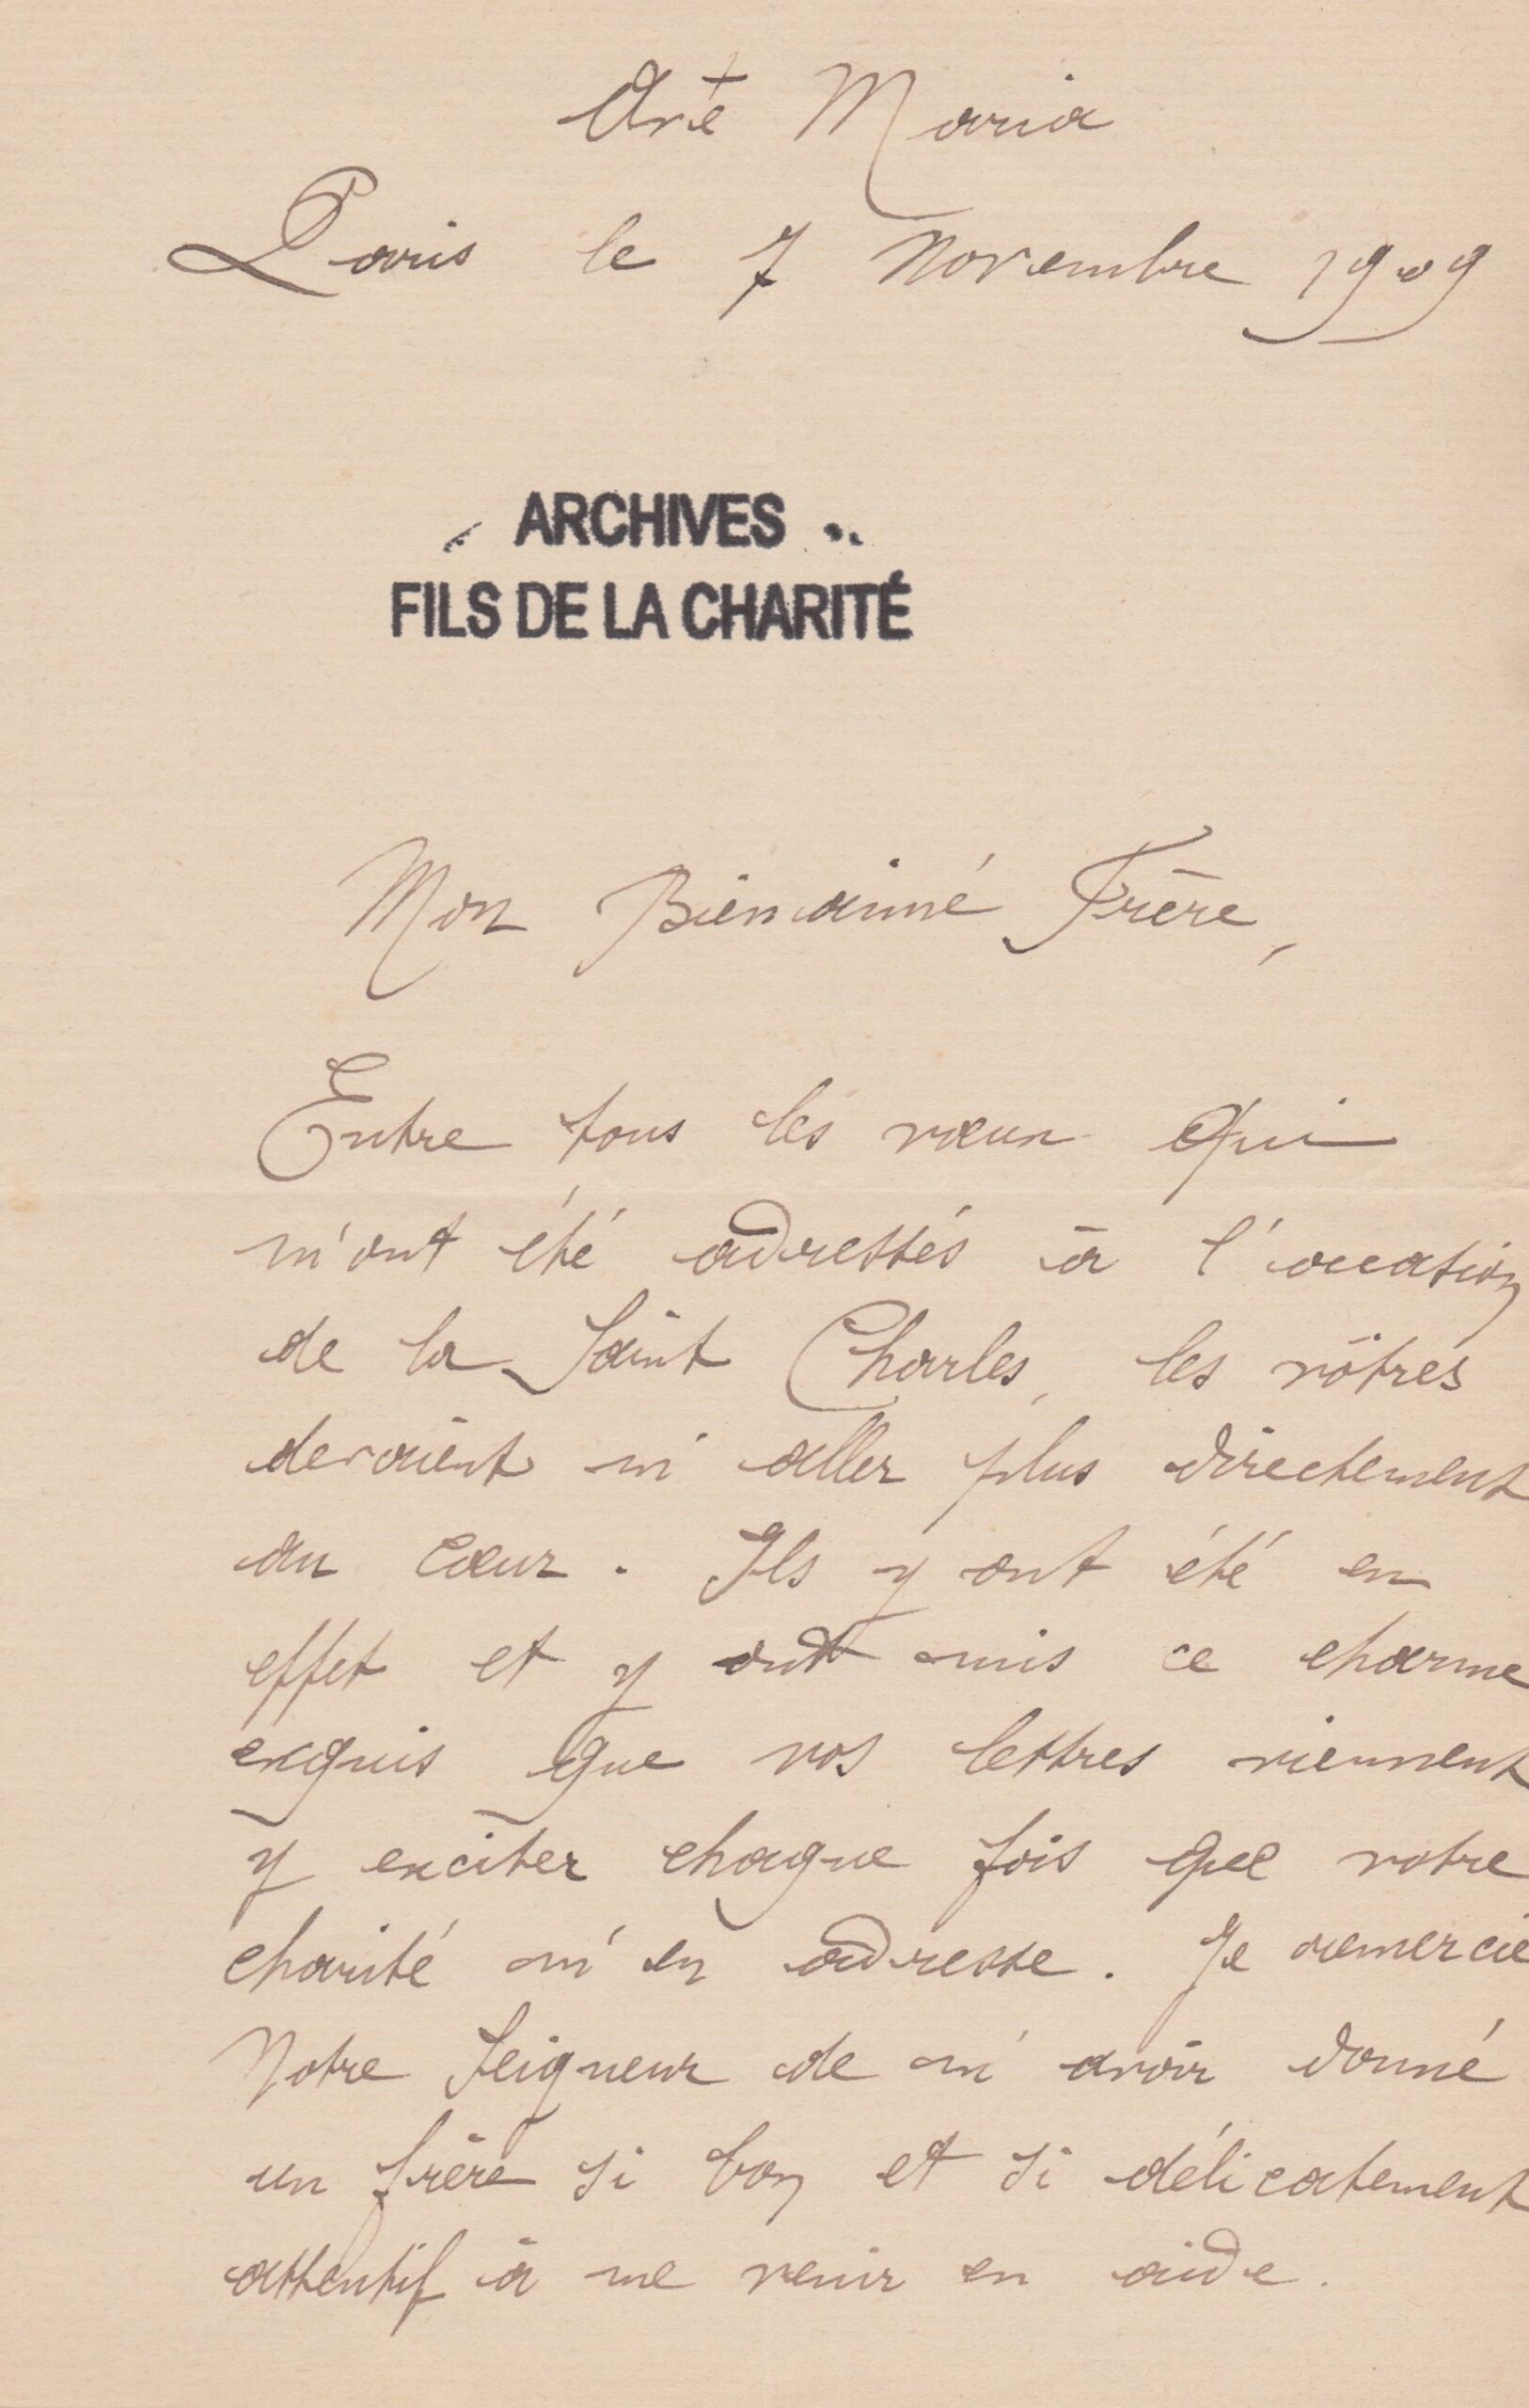 Ave + Maria
Paris le 7 Novembre 1909
ARCHIVES
FILS DE LA CHARITÉ
Mon Bien aimé Frère,
Entre tous les vœux qui
m'ont été adressés à l'occasion
de la Saint Charles, les vôtres
devaient m'aller plus directement
au cœur. Ils y ont été en
effet et y ont mis ce charme
exquis que vos lettres viennent
y exciter chaque fois que votre
charité m'en adresse. Je remercie
Notre Seigneur de m'avoir donné
un frère si bon et si délicatement
attentif à me venir en aide.